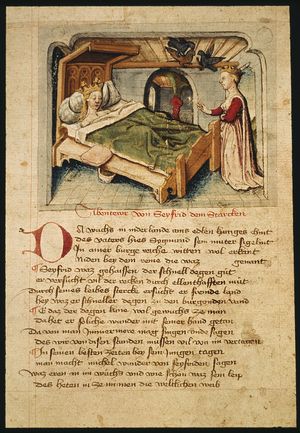 Abentewr von Seyfrid dem Starcken
DA wuchs in niderlande ains edlen kuniges chint
des vaters hies Sygmund sein muter sigelint
In ainer burge reiche witten wol erkant
Niden bey dem reine die waz genant
Seyfrid waz gehaissen der schnell degen gut
er versucht vil der reichen durch ellenthafften mut
durch seines leibes stercke er sucht er fremde land
hey waz er schneller degen zu den burgonden vand
E daz der degen kune wol gewuchs ze man
Da het er solche wunder mit seiner hend getan
Da von man ymmermere mag singen vnde sagen
des wir von disen stunden müssen vil von im vertagen
In seinen besten zeiten bey sein jungen tagen
man macht michel wunder von seyfriden sagen
waz eren an im wüchs vnd wie schön waz sein leip
des heten in ze minnen die weltlichen weib